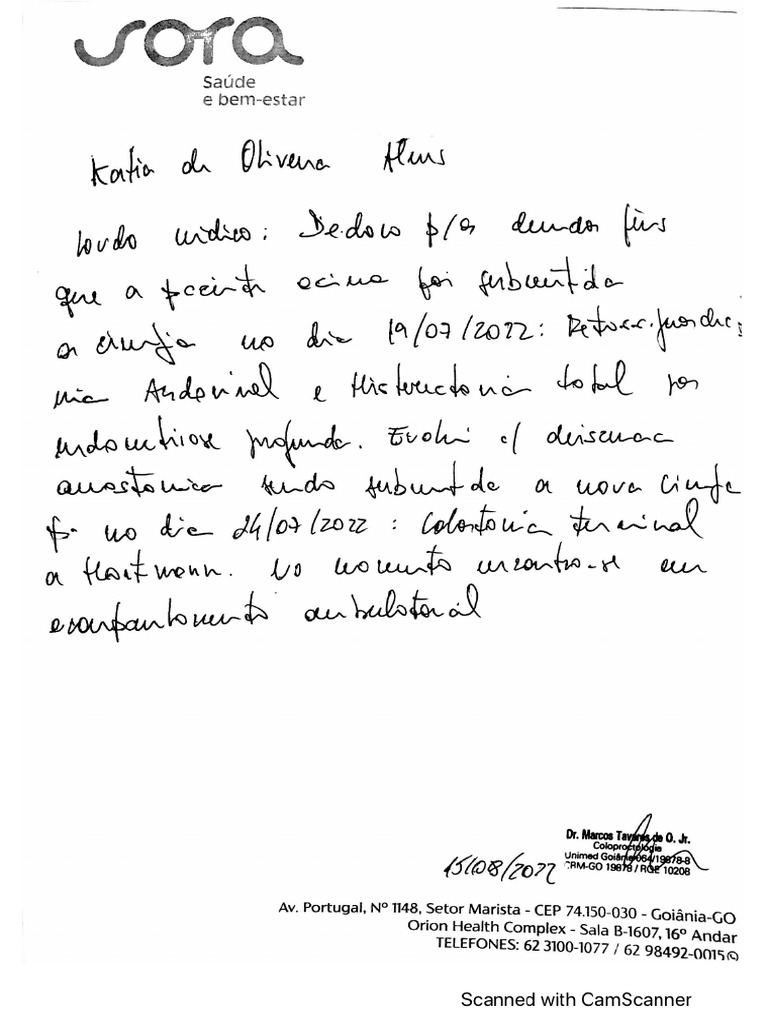 sora
Saúde
e bem-estar
Katia de Oliveira Alves
Laudo médico: Declaro p/ os devidos fins
que a paciente acima foi submetida
a cirurgia no dia 19/07/2022:
Abdominal e Histerectomia total por
endometriose profunda. Evolui c/ deiscencia
anastomica sendo submetida a nova cirurgia
no dia 24/07/2022: Colostomia terminal
a Hartmann. No momento encontra-se em
acompanhamento ambulatorial
Dr. Marcos Tavares de O. Jr.
Coloproctologia
Unimed Goiânia 064/19878-8
CRM-GO 19878 / RQE 10208
15/08/2022
Av. Portugal, Nº 1148, Setor Marista - CEP 74.150-030 - Goiânia-GO
Orion Health Complex - Sala B-1607, 16º Andar
TELEFONES: 62 3100-1077 / 62 98492-0015
Scanned with CamScanner